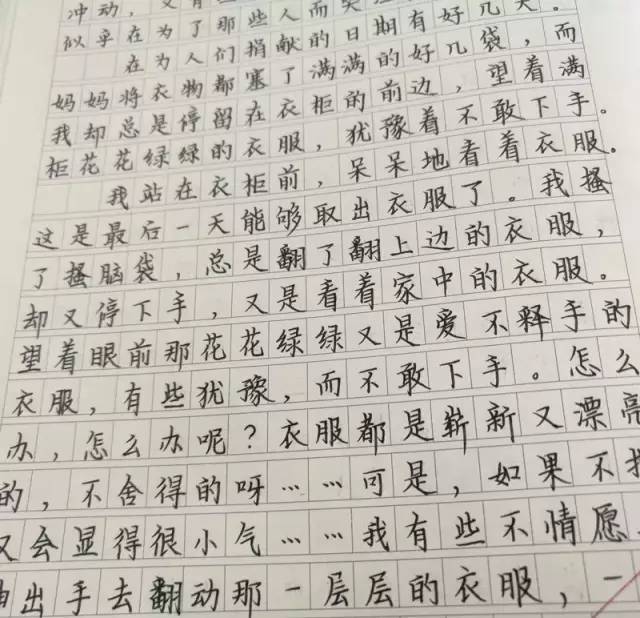 冲动，又有
似乎在为了那些人而
在为人们捐献的日期有好几天。
妈妈将衣物都塞了满满的好几袋，而
我却总是停留在衣柜的前边，望着满
柜花花绿绿的衣服，犹豫着不敢下手。
我站在衣柜前，呆呆地看着衣服。
这是最后一天能够取出衣服了。我搔
了搔脑袋，总是翻了翻上边的衣服，
却又停下手，又是看着家中的衣服。
望着眼前那花花绿绿又是爱不释手的
衣服，有些犹豫，而不敢下手。怎么
办，怎么办呢？衣服都是崭新又漂亮
的，不舍得的呀……可是，如果不
又会显得很小气……我有些不情愿
出手去翻动那一层层的衣服，一